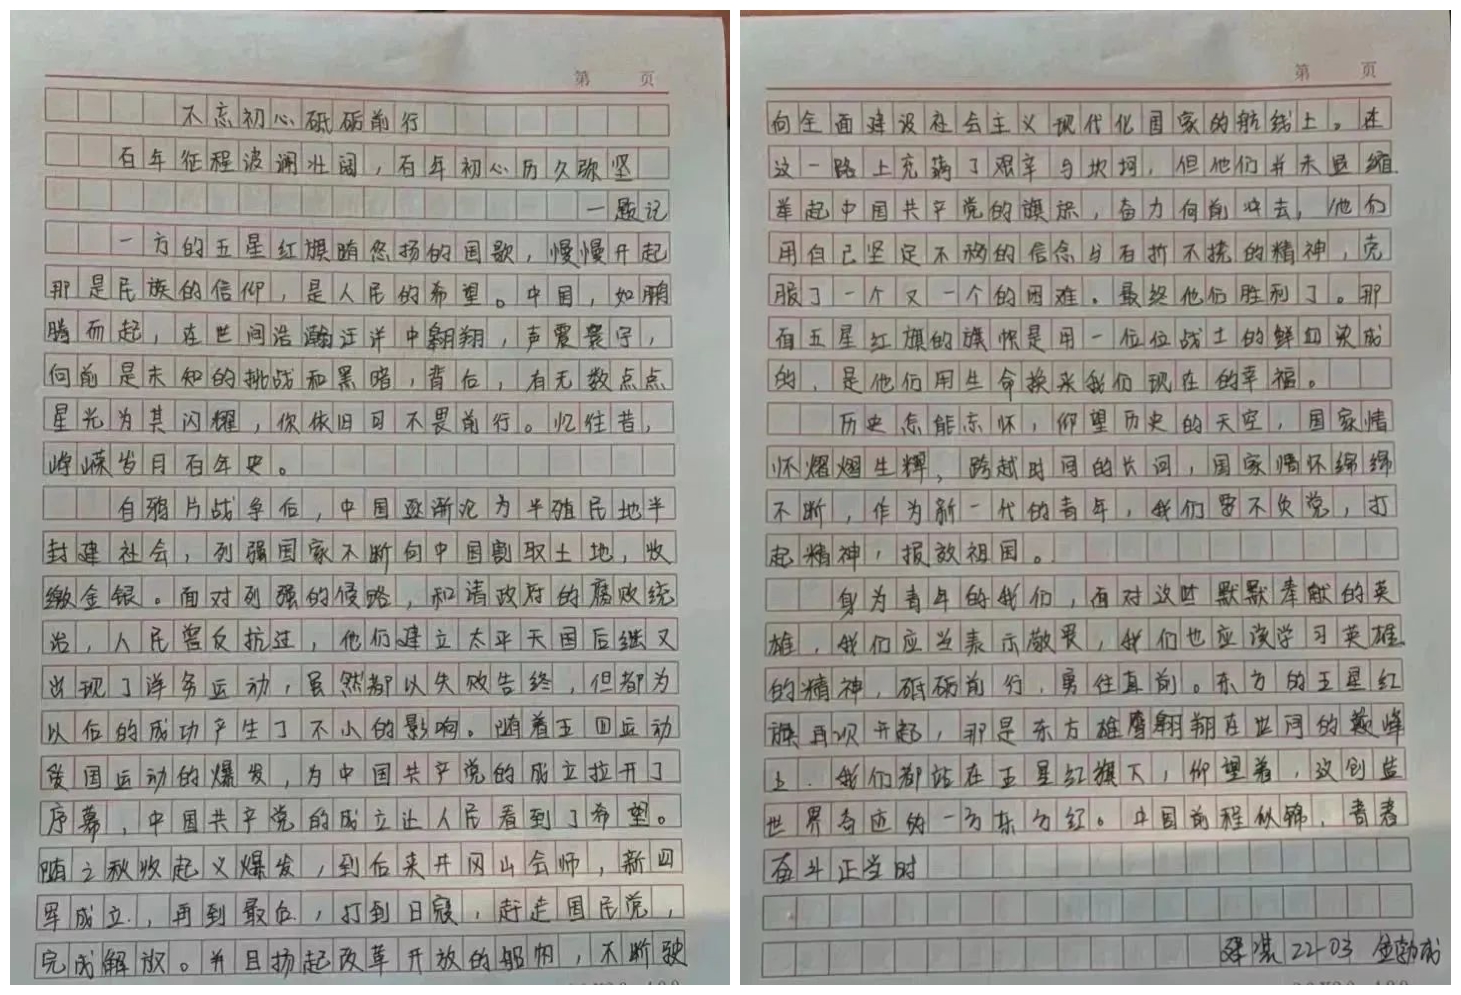 第 页
不忘初心砥砺前行
百年征程波澜壮阔，百年初心历久弥坚
—题记
一方的五星红旗随悠扬的国歌，慢慢升起
那是民族的信仰，是人民的希望。中国，如鹏
腾而起，在世间浩瀚汪洋中翱翔，声震寰宇，
向前是未知的挑战和黑暗，背后，有无数点点
星光为其闪耀，你依旧可不畏前行。忆往昔，
峥嵘岁月百年史。
自鸦片战争后，中国逐渐沦为半殖民地半
封建社会，列强国家不断向中国割取土地，收
缴金银。面对列强的侵略，和清政府的腐败统
治，人民曾反抗过，他们建立太平天国后继又
出现了洋务运动，虽然都以失败告终，但都为
以后的成功产生了不小的影响。随着五四运动
爱国运动的爆发，为中国共产党的成立拉开了
序幕，中国共产党的成立让人民看到了希望。
随之秋收起义爆发，到后来井冈山会师，新四
军成立，再到最后，打到日寇，赶走国民党，
完成解放。并且扬起改革开放的船帆，不断驶
第 页
向全面建设社会主义现代化国家的航线上。在
这一路上充满了艰辛与坎坷，但他们并未退缩
举起中国共产党的旗帜，奋力向前冲去，他们
用自己坚定不移的信念与百折不挠的精神，克
服了一个又一个的困难。最终他们胜利了。那
面五星红旗的旗帜是用一位位战士的鲜血染成
的，是他们用生命换来我们现在的幸福。
历史怎能忘怀，仰望历史的天空，国家情
怀熠熠生辉，跨越时间的长河，国家情怀绵绵
不断，作为新一代的青年，我们要不负党，打
起精神，报效祖国。
身为青年的我们，面对这些默默奉献的英
雄，我们应当表示敬畏，我们也应该学习英雄
的精神，砥砺前行，勇往直前。东方的五星红
旗再次升起，那是东方雄鹰翱翔在世间的巅峰
上，我们都站在五星红旗下，仰望着，这创造
世界奇迹的一方东方红。中国前程似锦，青春
奋斗正当时
22-03